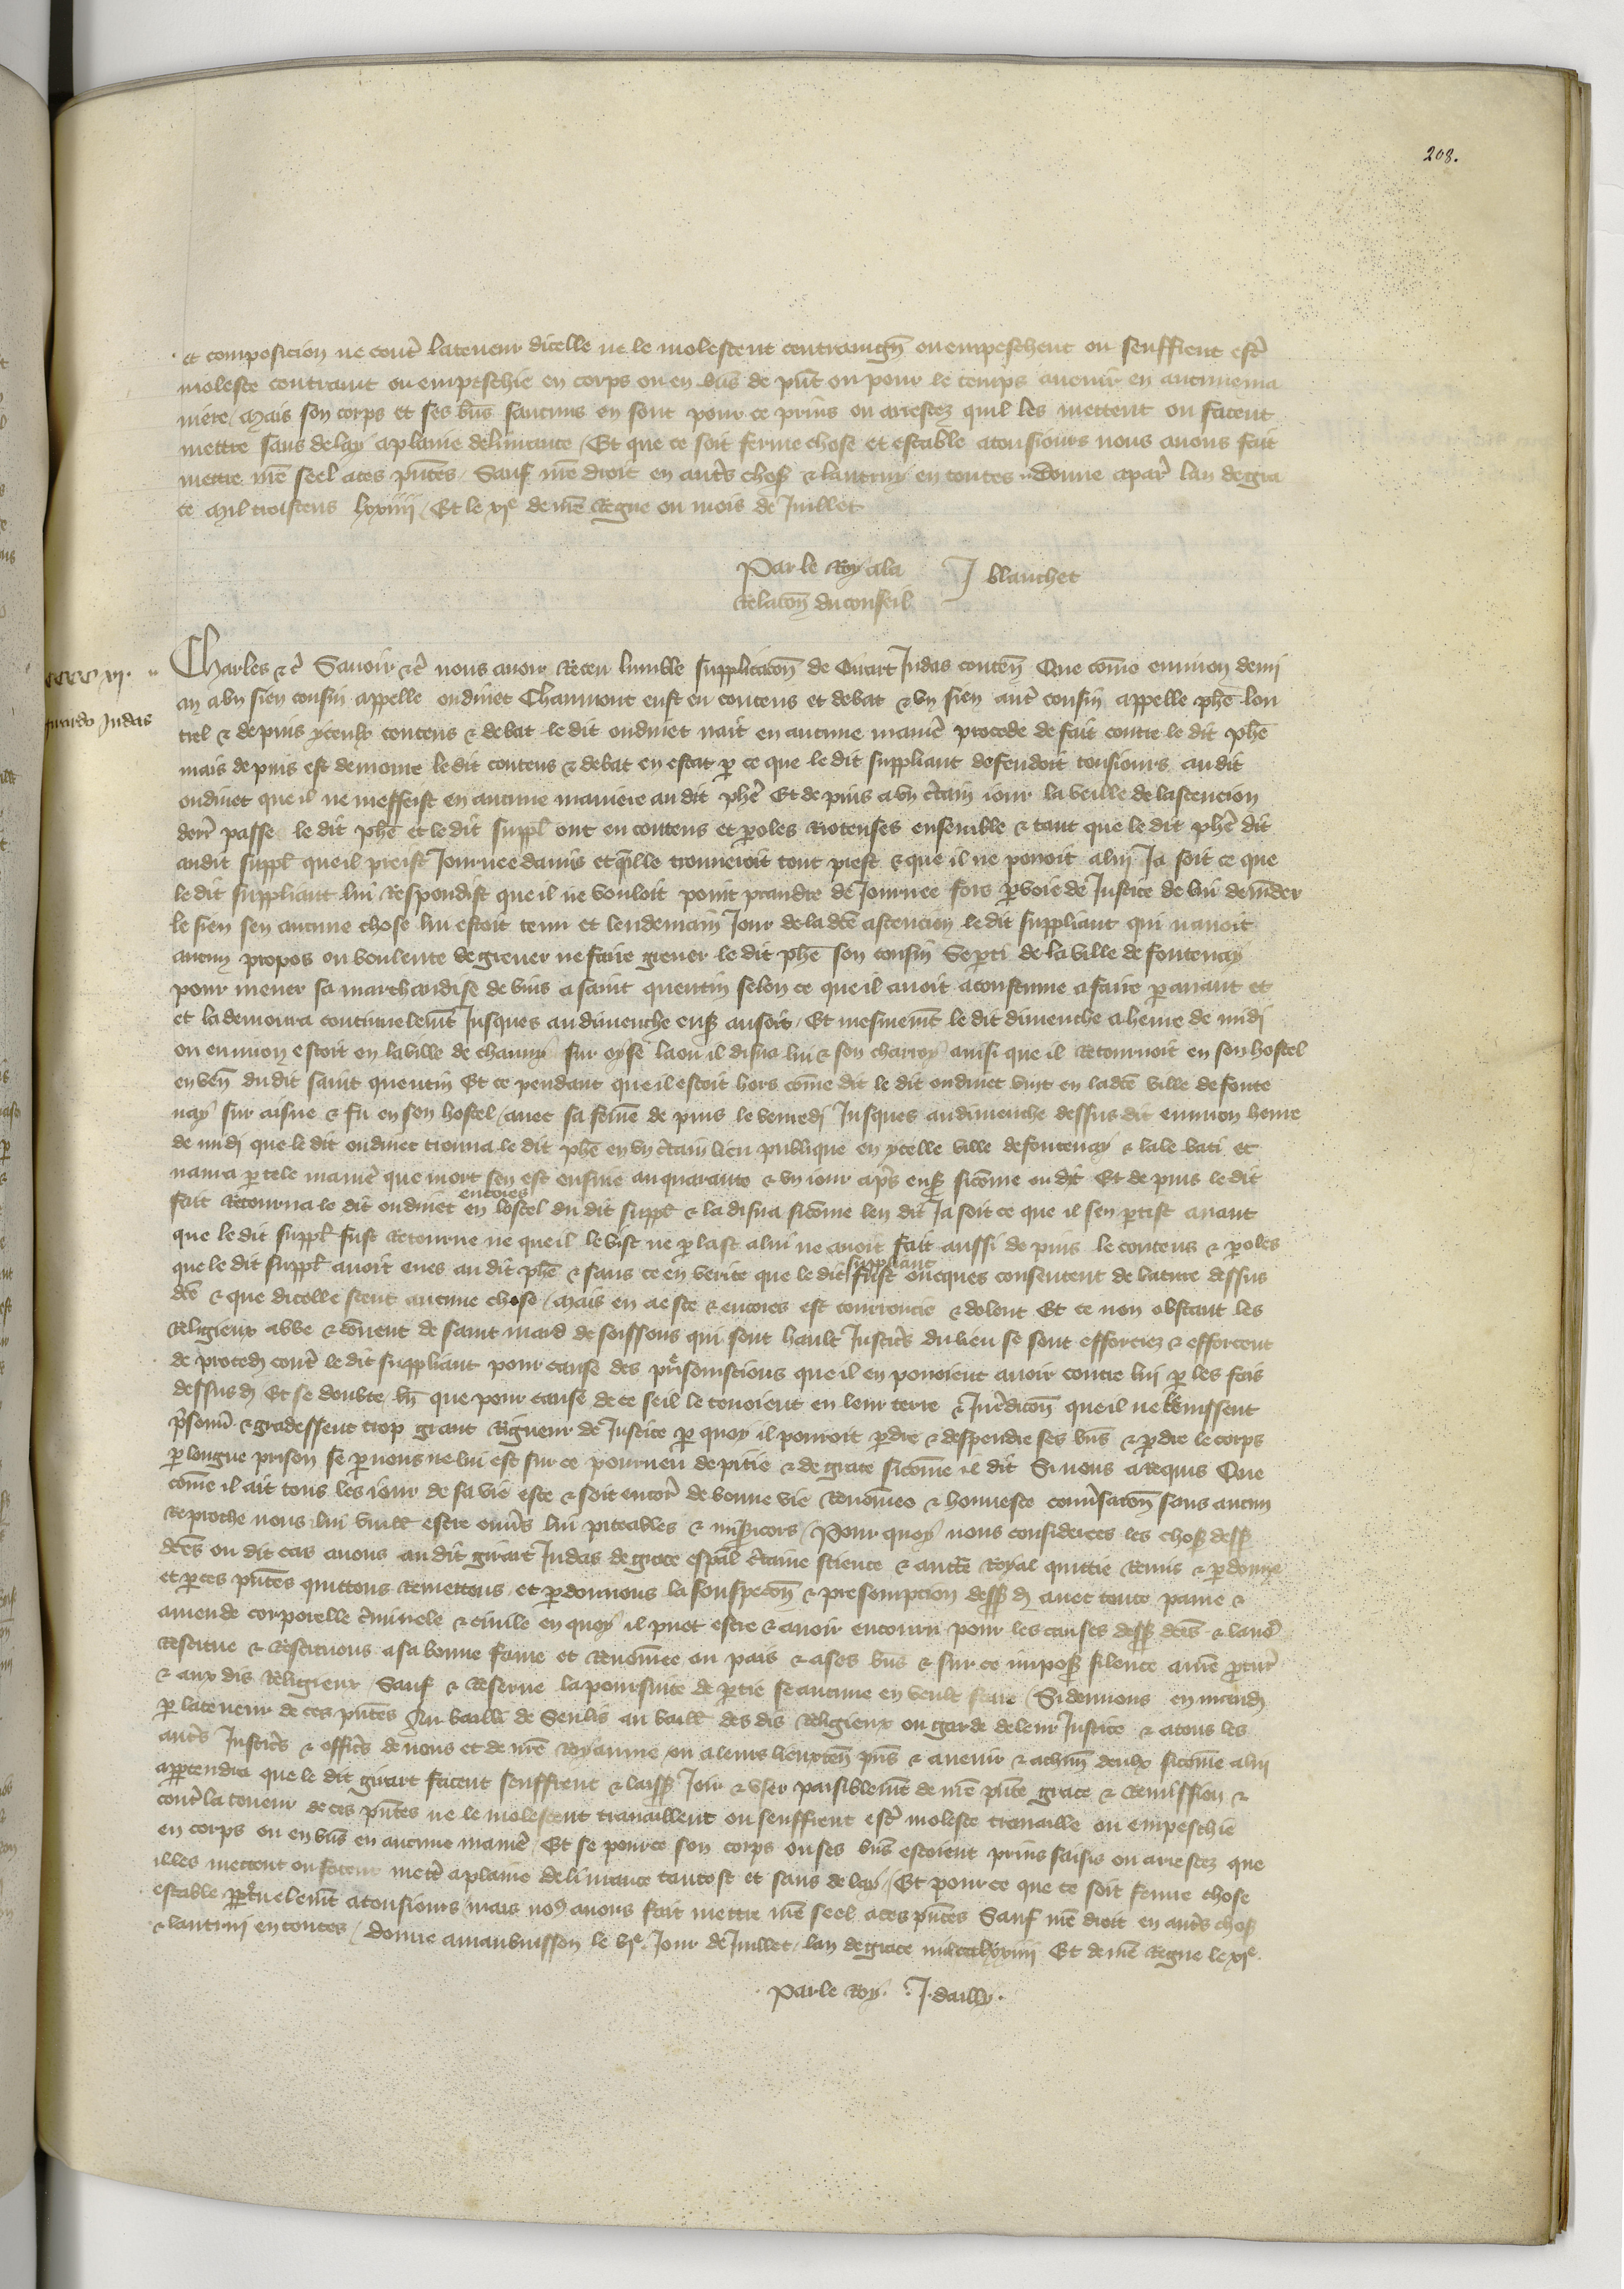 208.
et composicion ne contr̃ la teneur dicelle ne le molestent contraingñ ou empeschent ou seuffrent estr̃
moleste contraint ou empeschie en corps ou en biẽs de p̃nt ou pour le temps auenir en aucune ma
niere / Mais son corps et ses biẽs saucuns en sont pour ce prins ou arrestez quil les mettent ou facent
mettre sans delay a plaine deliurance / Et que ce soit ferme chose et estable a tousiours nous auons fait
mettre nr̃e seel a ces p̃ntes / Sauf nr̃e droit en autr̃s chos̃ & lautruy en toutes / Donne a par̃ lan de gra
ce Mil troiscens lxxiiij / Et le xjᵉ de nr̃e Regne ou mois de Juillet
Par le Roy a la J blanchet
Relacõn du conseil
cccc xij.
Girardo Judas
Charles &c̃ Sauoir &c̃ nous auoir Receu lumble supplicacõn de Girart Judas conteñ Que cõme enuiron demi
an a vn sien cousin appelle oudinet Chaumont eust eu contens et debat & vn sien autr̃ cousin appelle ph̃e lou
tiel & depuis yceulx contens & debat le dit oudinet nait en aucune manier̃ procede de fait contre le dit ph̃e
mais depuis est demoure le dit contens & debat en estat p̱ ce que le dit suppliant defendoit tousiours au dit
oudinet que il ne meffeist en aucune maniere au dit ph̃e Et depuis a vn c̃tain iour la veille de lascencion
derr̃ passee le dit ph̃e et le dit suppl̃ ont eu contens et p̱oles Rioteuses ensemble & tant que le dit ph̃e dit
au dit suppl̃ que il preist Journee damis et q̃ille trouueroit tout prest & que il ne pouoit a lui Ja soit ce que
le dit suppliant lui Respondist que il ne vouloit point prandre de Journee fors p̱ voie de Justice de lui demãder
le sien sen aucune chose lui estoit tenu et lendemain Jour de la dc̃e ascencion le dit suppliant qui nauoit
aucun propos ou voulente de greuer ne faire greuer le dit ph̃e son cousin Se p̱ti de la ville de fontenay
pour mener sa marchandise de vins a saint quentin selon ce que il auoit acoustume a faire p̱ auant et
et la demoura continuelemẽt Jusques au dimenche ens̃ au soir / Et mesmemẽt le dit dimenche a heure de midi
ou enuiron estoit en la ville de chauny sur oyse la ou il disna lui & son charroy ainsi que il Retournoit en son hostel
en veñ du dit saint quentin Et ce pendant que il estoit hors cõme dit le dit oudinet vint en la dc̃e ville de fonte
nay sur aisne & fu en son hostel / auec sa fem̃e depuis le venredi Jusques au dimenche dessus dit enuiron heure
de midi que le dit oudinet trouua le dit ph̃e en vn c̃tain lieu publique en ycelle ville de fontenay & la le bati et
naura p̱ tele manier̃ que mort sen est ensuie au quarante & vn iour apr̃s ens̃ sicõme on dit Et depuis le dit
fait Retourna le dit oudinet encores en lostel du dit suppl̃ & la disna sicõme len dit Ja soit ce que il sen p̱tist auant
que le dit suppl̃ fust Retourne ne que il le vist ne p̱last a lui ne auoit fait aussi depuis le contens & p̱oles
que le dit suppl̃ auoit eues au dit ph̃e & sans ce en verite que le dit suppliant fust oncques consentent de bature dessus
dc̃e & que dicelle sceut aucune chose / Mais en a este & encores est courroucie & dolent Et ce non obstant les
Religieux abbe & couuent de saint maard de soissons qui sont hault Justicr̃s du lieu se sont efforciez & efforcent
de proceder̃ contr̃ le dit suppliant pour cause des p̃rsompcions que il en pouoient auoir contre lui p̱ les fais
dessus d̃ Et se doubte bñ que pour cause de ce seil le tenoient en leur terre & Jur̃dicõn que il ne lempnissent
p̃sonñ & gardessent trop grant Rigueur de Justice p̱ quoy il pourroit p̱dre & despendre ses biẽs & p̱dre le corps
p̱ longue prison se p̱ nous ne lui est sur ce pourueu de pitie & de grace sicõme il dit Si nous a Requis Que
cõme il ait tous les iour de sa vie este & soit encor̃ de bonne vie Renõmee & honneste conuersacõn sans aucun
Reproche nous lui vueill̃ estre enuers lui piteables & mis̃icors / Pour quoy nous considerees les chos̃ dess̃
dc̃es ou dit cas auons au dit girart Judas de grace esp̃al c̃taine science & auctẽ Royal quittie Remis & p̱donne
et p̱ ces p̃ntes quittons Remettons et p̱donnons la souspecõn & presompcion dess̃ d̃ auec toute paine &
amende corporelle c̃iminele & ciuile en quoy il puet estre & auoir encouru pour les causes dess̃ dc̃es & lauõ
Restitue & Restituons a sa bonne fame et Renõmee ou pais & a ses biẽs & sur ce impos̃ silence a nr̃e p̱cur̃
& aux dis Religieux / Sauf & Reserue la poursuite de p̱tie se aucune en veult faire / Si donnons en mand̃
p̱ la teneur de ces p̃ntes Au bailli de Senlis au baill̃ des dis Religieux ou garde de leur Justice & a tous les
autr̃s Justicr̃s & officr̃s de nous et de nr̃e Royaume ou a leurs lieuxteñ p̃ns & auenir & a chũn deulx sicõme a lui
app̱tendra que le dit girart facent seuffrent & laiss̃ Joir & vser paisiblemẽt de nr̃e p̃nte grace & Remission &
contr̃ la teneur de ces p̃ntes ne le molestent trauaillent ou seuffrent estr̃ moleste trauaille ou empeschie
en corps ou en biẽs en aucune manier̃ / Et se pour ce son corps ou ses biẽs estoient prins saisis ou arrestez que
illes mettent ou facent mettr̃ a plaine deliurance tantost et sans delay / Et pour ce que ce soit ferme chose
estable p̱petuelemẽt a tousiours mais noꝰ auons fait mettre nr̃e seel a ces p̃ntes Sauf nr̃e droit en autr̃s chos̃
& lautrui en toutes / Donne a maubuisson le vjᵉ Jour de Juillet / lan de grace mil ccc lxxiiij Et de nr̃e Regne le xjᵉ
Par le Roy. J. dailly.